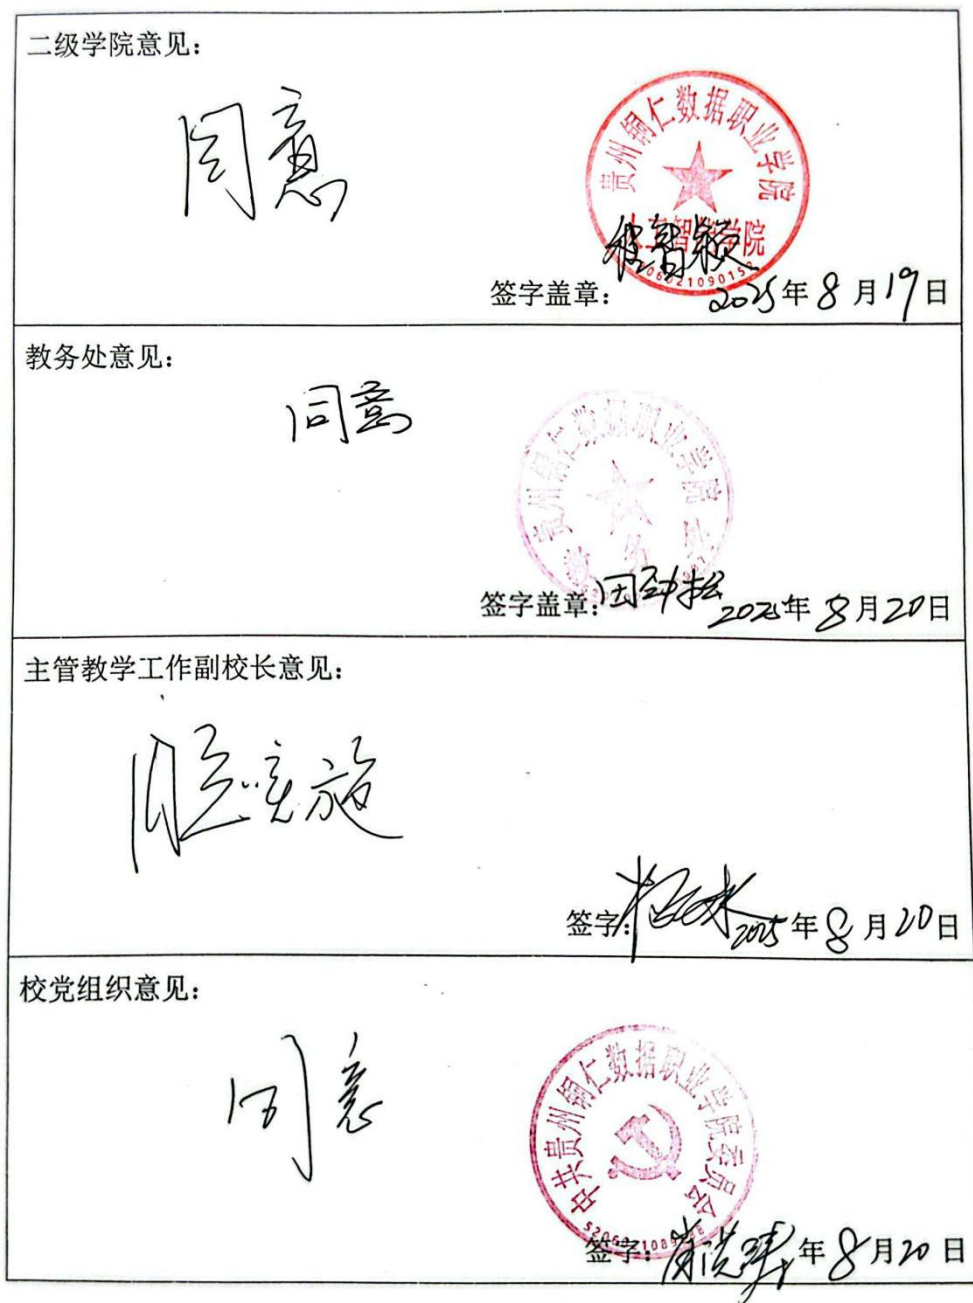 二级学院意见：
同意
贵州铜仁数据职业学院
签字盖章：
2025年8月19日
教务处意见：
同意
贵州铜仁数据职业学院
教务处
签字盖章：田劲松
2025年8月20日
主管教学工作副校长意见：
同意实施
签字：
2025年8月20日
校党组织意见：
同意
中共贵州铜仁数据职业学院委员会
签字：
年8月20日